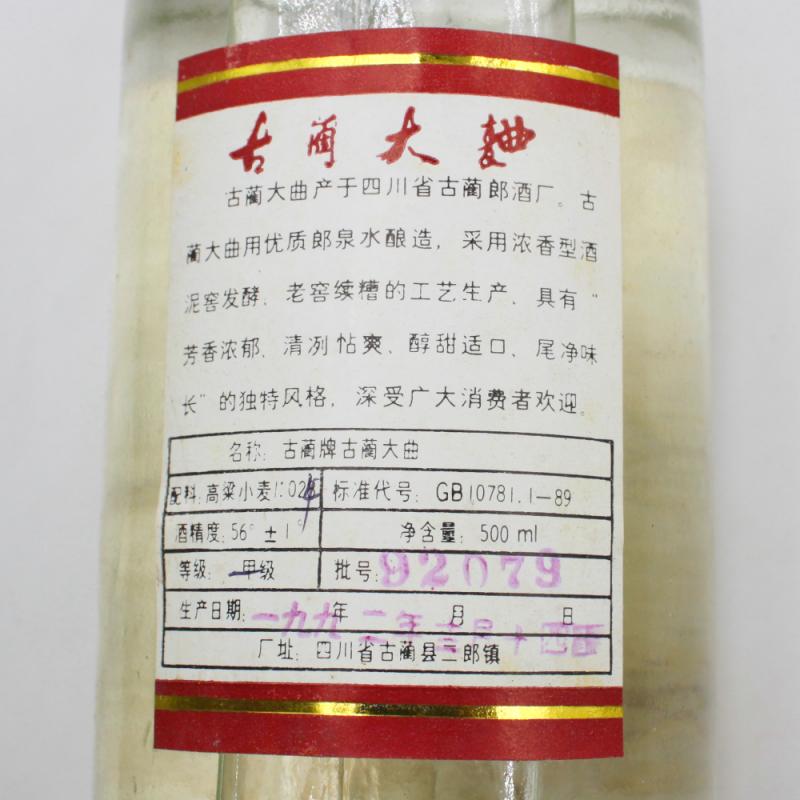 古蔺大麯
古蔺大曲产于四川省古蔺郎酒厂。古
蔺大曲用优质郎泉水酿造，采用浓香型酒
泥窖发酵、老窖续糟的工艺生产、具有“
芳香浓郁、清冽帖爽、醇甜适口、尾净味
长”的独特风格，深受广大消费者欢迎。
名称：古蔺牌古蔺大曲
配料：高粱小麦1:0.24 标准代号：GB10781.1—89
酒精度：56°±1° 净含量：500 ml
等级：甲级 批号：92079
生产日期： 年 月 日
一九九二年 月十四日
厂址：四川省古蔺县二郎镇